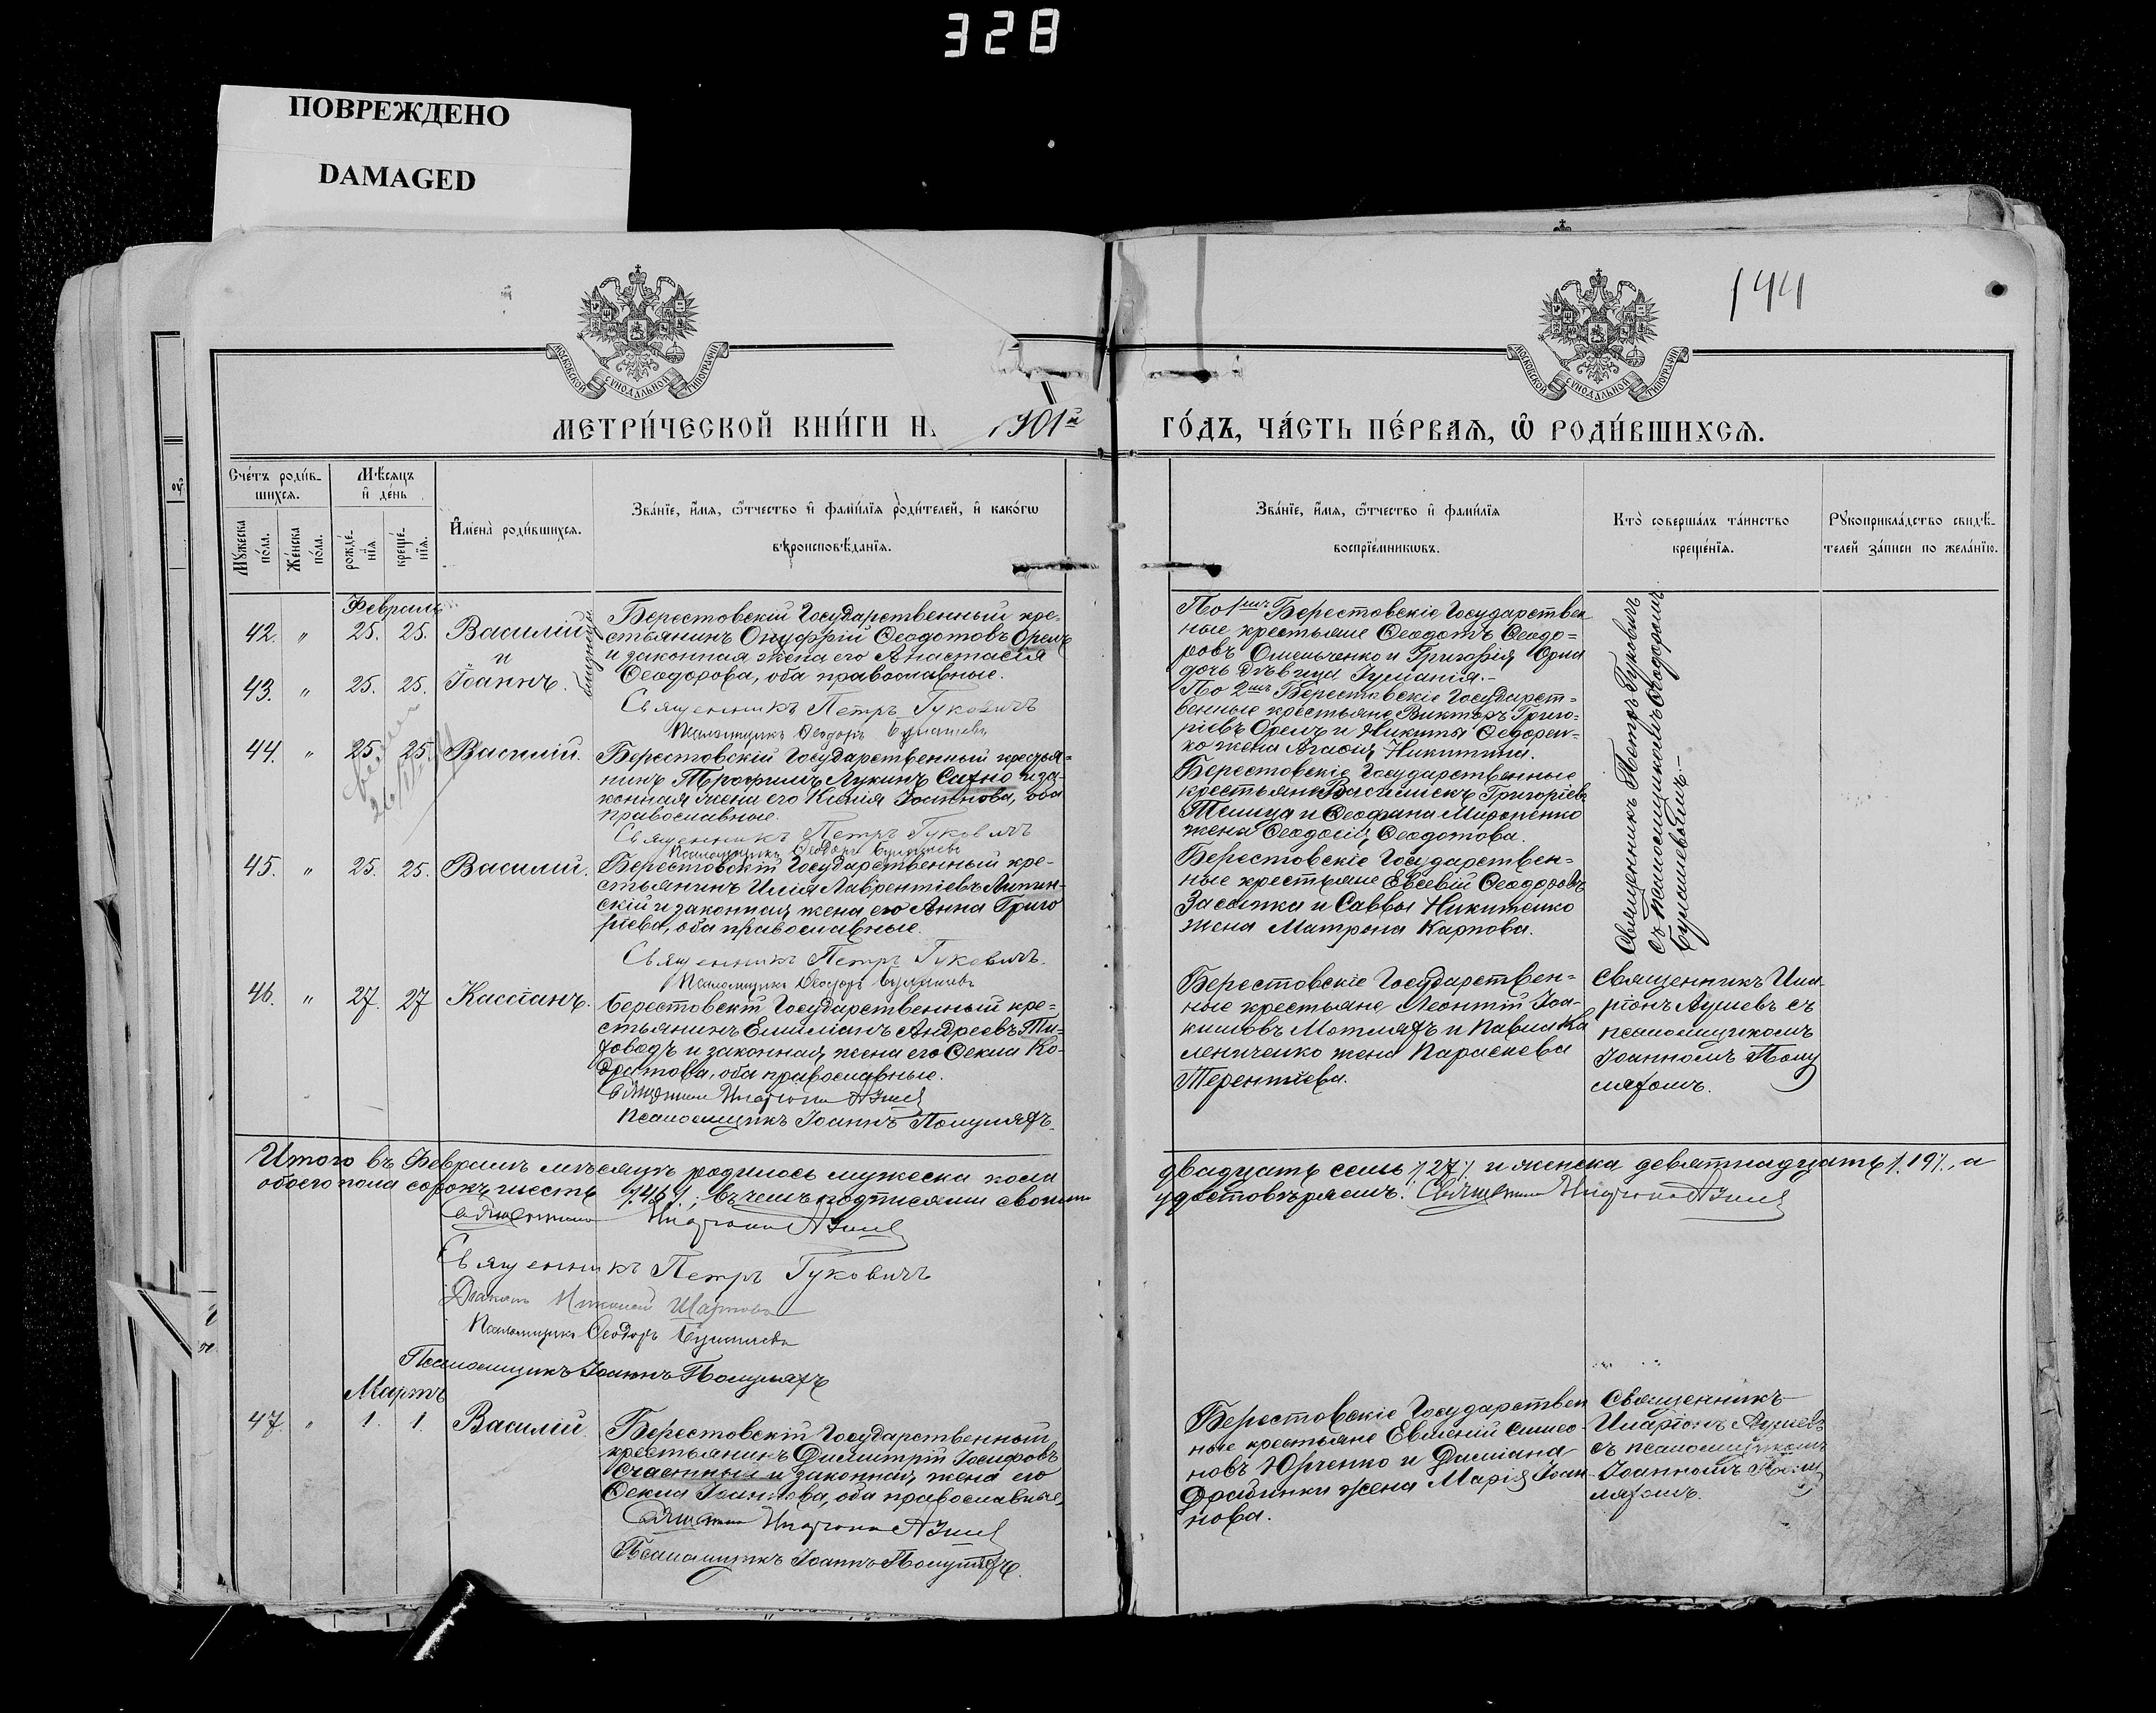 328
ПОВРЕЖДЕНО
DAMAGED
144
МОСКОВСКОЙ СѴНОДАЛЬНОЙ ТИПОГРАФІИ
МОСКОВСКОЙ СѴНОДАЛЬНОЙ ТИПОГРАФІИ
МЕТРИ́ЧЕСКОЙ КНИ́ГИ Н. 1901й ГО́ДЪ, ЧА́СТЬ ПЕ́РВАѦ, Ѡ РОДИ́ВШИХСѦ.
Счетъ роди́в-
шихся.
Мѣсяцъ
и де́нь
Имена̀ роди́вшихся.
Зва́нїе, и́мя, ѻ́тчество и фами́лїя роди́телей, и како́гѡ
вѣроисповѣ́данїя.
Зва́нїе, и́мя, ѻ́тчество и фами́лїя
воспрїе́мникѡвъ.
Кто̀ соверша́лъ та́инство
креще́нїя.
Рꙋкоприкла́дство свидѣ́-
телей за́писи по жела́нїю.
Мꙋ́жеска
по́ла.
Же́нска
по́ла.
рожде́-
нїя
креще́-
нїя.
Февраль
42. " 25. 25. Василій
и
43. " 25. 25. Іоаннъ.
близнецы
Берестовскій Государственный кре-
стьянинъ Онуфрій Ѳеодотовъ Орелъ
и законная жена его Анастасія
Ѳеодорова, оба православные.
Священникъ Петръ Гуковичъ
Псаломщикъ Ѳеодоръ
По 1мъ Берестовскіе Государствен
ные крестьяне Ѳеодотъ Ѳеодо=
ровъ Омельченко и Григорія Орла
дочь дѣвица
По 2мъ Берестовскіе Государст=
венные крестьяне Викторъ Григо=
ріевъ Орелъ и Никиты Ѳедорен=
ко жена Агафія Никитина.
Священникъ Петръ Гуковичъ
съ псаломщикомъ Ѳеодоромъ
44. " 25. 25. Василій.
Берестовскій Государственный крестья=
нинъ Трофимъ Лукинъ Сахно и за-
конная жена его Ксенія Іоаннова, оба
православные.
Священникъ Петръ Гуковичъ
Псаломщикъ Ѳеодоръ
Берестовскіе Государственные
крестьяне Григоріевъ
и Ѳеофана
жена Ѳеодосія Ѳеодотова.
45. " 25. 25. Василій.
Берестовскій Государственный кре-
стьянинъ Илія Лаврентіевъ Липин-
скій и законная жена его Анна Григо
ріева, оба православные
Священникъ Петръ Гуковичъ.
Псаломщикъ Ѳеодоръ
Берестовскіе Государствен=
ные крестьяне Евсевій Ѳеодоровъ
Засыпка и Саввы Никитенко
жена Матрона Карпова.
46. " 27. 27 Кассіанъ.
Берестовскій Государственный кре=
стьянинъ Емиліанъ Андреевъ Ти-
ховодъ и законная жена его Ѳекла Ко-
дратова, оба православные.
Священникъ Иларіонъ
Псаломщикъ Іоаннъ Помуляхъ.
Берестовскіе Государствен=
ные крестьяне Леонтій Іоа-
кимовъ Мотляхъ и Павла Ка
лениченко жена Параскева
Терентіева.
Священникъ Ила-
ріонъ съ
псаломщикомъ
Іоанномъ Пому
ляхомъ.
Итого въ Февралѣ мѣсяцѣ родилось мужеска пола двадцать семь /27/ и женска девятнадцать /19/, а
обоего пола сорокъ шесть /46/; въ чемъ подписями своими удостовѣряемъ: Священникъ Иларіонъ
Священникъ Иларіонъ
Священникъ Петръ Гуковичъ
Діаконъ Николай
Псаломщикъ Ѳеодоръ
Псаломщикъ Іоаннъ Помуляхъ
Мартъ
47. " 1. 1. Василій
Берестовскій Государственный
крестьянинъ Димитрій Іосифовъ
Счастный и законная жена его
Ѳекла Іоаннова, оба православные,
Священникъ Иларіонъ
Псаломщикъ Іоаннъ Помуляхъ.
Берестовскіе Государствен
ные крестьяне Евгеній Симео-
новъ Юрченко и Даміана
жена Марія Іоан-
нова.
Священникъ
Иларіонъ
съ псаломщикомъ
Іоанномъ Пому
ляхомъ.